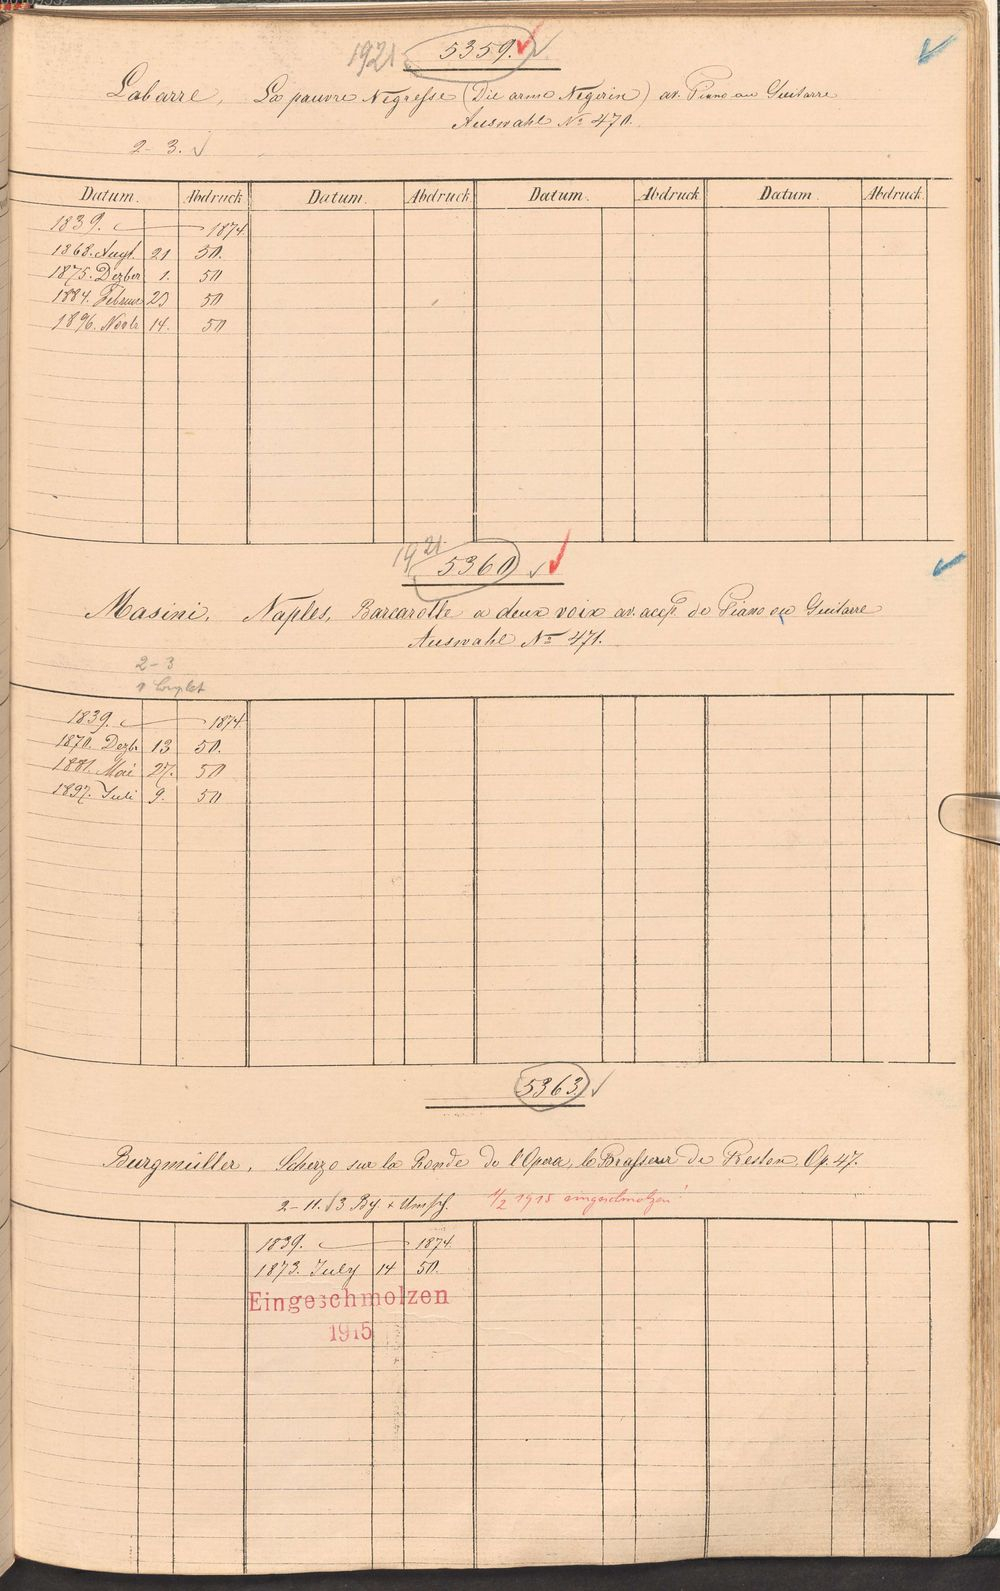 1921 5359.
Labarre, La pauvre Negresse (Die arme Negerin) av. Piano ou Guitarre
Auswahl No 470.
2-3.
Datum. Abdruck Datum. Abdruck Datum. Abdruck Datum. Abdruck
1839. 1874
1868. Augt. 21 50.
1875. Dezber 1. 50
1884. Februar 23 50
1896. Novbr 14. 50
1921 5360
Masini, Naples, Barcarolle a deux voix av. accp. de Piano ou Guitarre
Auswahl No 471.
2-3
1 Couplet
1839. 1874
1870. Dezb. 13 50.
1881. Mai 27. 50
1897. Juli 9. 50
5363.
Burgmüller, Scherzo sur la Ronde de l'Opera, le Brasseur de Preston, Op. 47.
2-11. 1/2 1915 eingeschmolzen!
1839. 1874.
1873. July 14 50.
Eingeschmolzen
1915